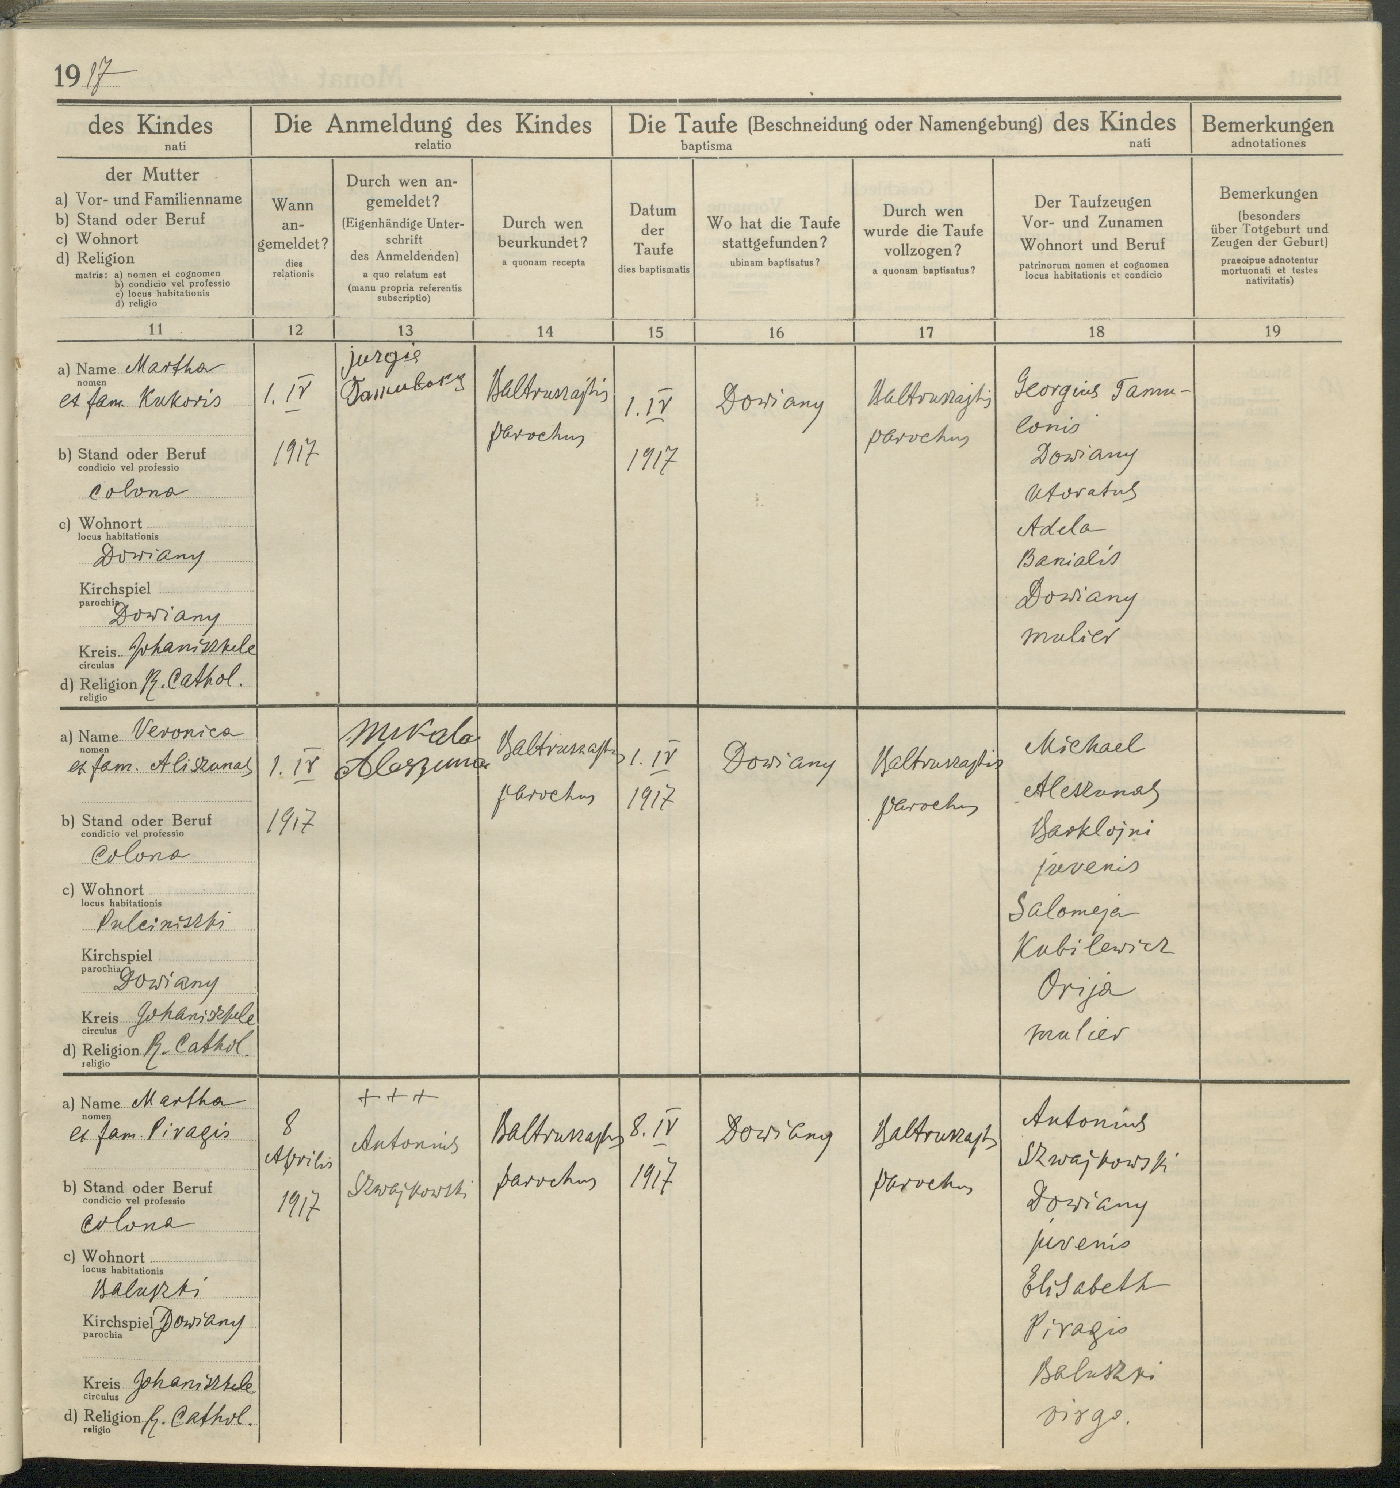 1917
des Kindes
nati
Die Anmeldung des Kindes
relatio
Die Taufe (Beschneidung oder Namengebung) des Kindes
baptisma
nati
Bemerkungen
adnotationes
der Mutter
a) Vor- und Familienname
b) Stand oder Beruf
c) Wohnort
d) Religion
matris: a) nomen et cognomen
b) condicio vel professio
c) locus habitationis
d) religio
Wann
an-
gemeldet?
dies
relationis
Durch wen an-
gemeldet?
(Eigenhändige Unter-
schrift
des Anmeldenden)
a quo relatum est
(manu propria referentis
subscriptio)
Durch wen
beurkundet?
a quonam recepta
Datum
der
Taufe
dies baptismatis
Wo hat die Taufe
stattgefunden?
ubinam baptisatus?
Durch wen
wurde die Taufe
vollzogen?
a quonam baptisatus?
Der Taufzeugen
Vor- und Zunamen
Wohnort und Beruf
patrinorum nomen et cognomen
locus habitationis et condicio
Bemerkungen
(besonders
über Totgeburt und
Zeugen der Geburt)
praecipue adnotentur
mortuonati et testes
nativitatis)
11
12
13
14
15
16
17
18
19
a) Name Martha
nomen
et fam. Kukoris
b) Stand oder Beruf
condicio vel professio
colona
c) Wohnort
locus habitationis
Dowiany
Kirchspiel
parochia
Dowiany
Kreis Johaniszkele
circulus
d) Religion R. Cathol.
religio
1. IV
1917
jurgis
Baltruszajtis
parochus
1. IV
1917
Dowiany
Baltruszajtis
parochus
Georgius Tamu-
lonis
Dowiany
uxoratus
Adela
Banialis
Dowiany
mulier
a) Name Veronica
nomen
et fam. Aliszunas
b) Stand oder Beruf
condicio vel professio
colona
c) Wohnort
locus habitationis
Pulciniszki
Kirchspiel
parochia
Dowiany
Kreis Johaniszkele
circulus
d) Religion R. Cathol.
religio
1. IV
1917
Mikala
Baltruszajtis
parochus
1. IV
1917
Dowiany
Baltruszajtis
parochus
Michael
Aleszunas
Barklojni
juvenis
Salomeja
Kubilewicz
Orija
mulier
a) Name Martha
nomen
et fam. Piragis
b) Stand oder Beruf
condicio vel professio
colona
c) Wohnort
locus habitationis
Baluszki
Kirchspiel Dowiany
parochia
Kreis Johaniszkele
circulus
d) Religion R. Cathol.
religio
8
Aprilis
1917
+++
Antonius
Szwajkowski
Baltruszajtis
parochus
8. IV
1917
Dowiany
Baltruszajtis
parochus
Antonius
Szwajkowski
Dowiany
juvenis
Elisabeth
Piragis
Baluszki
virgo.